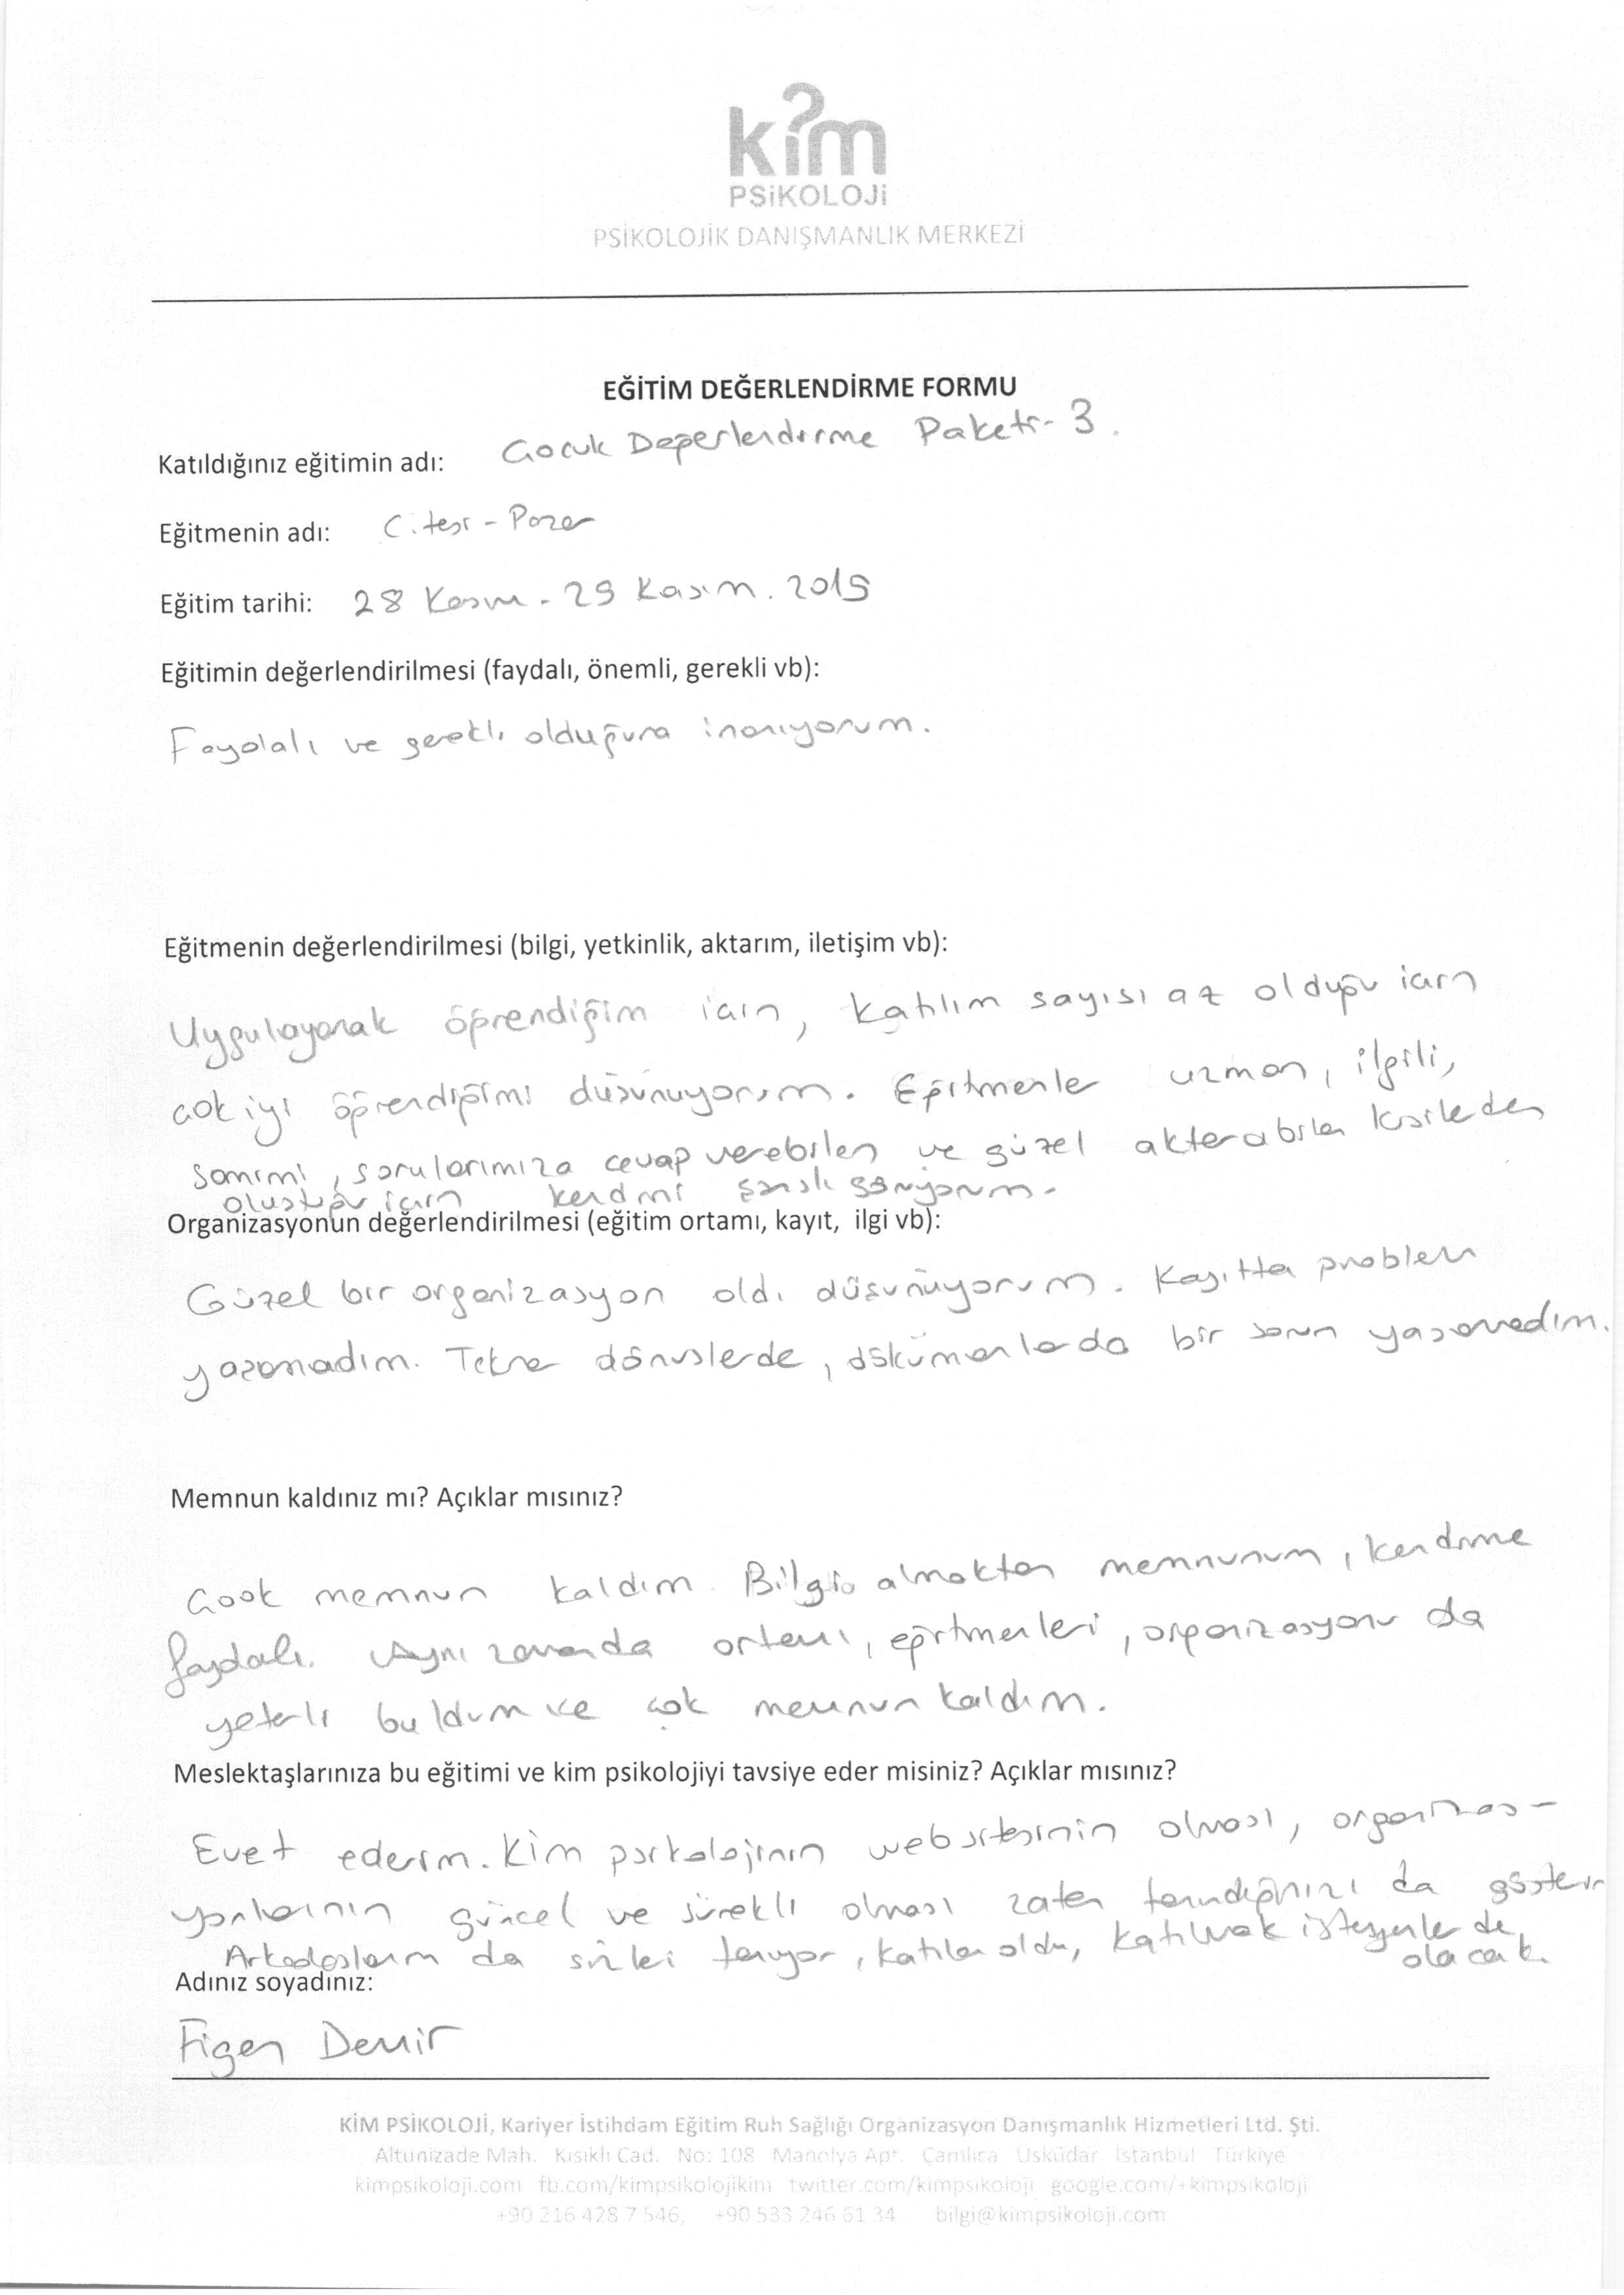 kim
PSiKOLOJi
PSİKOLOJİK DANIŞMANLIK MERKEZİ
EĞİTİM DEĞERLENDİRME FORMU
Katıldığınız eğitimin adı: Çocuk Değerlendirme Paketi-3.
Eğitmenin adı: C.tesi - Pazar
Eğitim tarihi: 28 Kasım - 29 Kasım. 2015
Eğitimin değerlendirilmesi (faydalı, önemli, gerekli vb):
Faydalı ve gerekli olduğuna inanıyorum.
Eğitmenin değerlendirilmesi (bilgi, yetkinlik, aktarım, iletişim vb):
Uygulayarak öğrendiğim için, katılım sayısı az olduğu için
çok iyi öğrendiğimi düşünüyorum. Eğitmenler uzman, ilgili,
samimi, sorularımıza cevap verebilen ve güzel aktarabilen kişilerden
oluştuğu için kendimi şanslı görüyorum.
Organizasyonun değerlendirilmesi (eğitim ortamı, kayıt, ilgi vb):
Güzel bir organizasyon old. düşünüyorum. Kayıtta problem
yaşamadım. Tekrar dönüşlerde, dökümanlarda bir sorun yaşamadım.
Memnun kaldınız mı? Açıklar mısınız?
Çook memnun kaldım. Bilgi almaktan memnunum, kendime
faydalı. Aynı zamanda ortamı, eğitmenleri, organizasyonu da
yeterli buldum ve çok memnun kaldım.
Meslektaşlarınıza bu eğitimi ve kim psikolojiyi tavsiye eder misiniz? Açıklar mısınız?
Evet ederim. Kim psikolojinin websitesinin olması, organizas-
yonlarının güncel ve sürekli olması zaten tanındığınızı da gösterir
Arkadaşlarım da sizleri tanıyor, katılan oldu, katılmak isteyenler de
olacak.
Adınız soyadınız:
Figen Demir
KİM PSİKOLOJİ, Kariyer İstihdam Eğitim Ruh Sağlığı Organizasyon Danışmanlık Hizmetleri Ltd. Şti.
Altunizade Mah. Kısıklı Cad. No: 108 Manolya Apt. Çamlıca Üsküdar İstanbul Türkiye
kimpsikoloji.com fb.com/kimpsikolojikim twitter.com/kimpsikoloji google.com/+kimpsikoloji
+90 216 428 7 546, +90 533 246 61 34 bilgi@kimpsikoloji.com